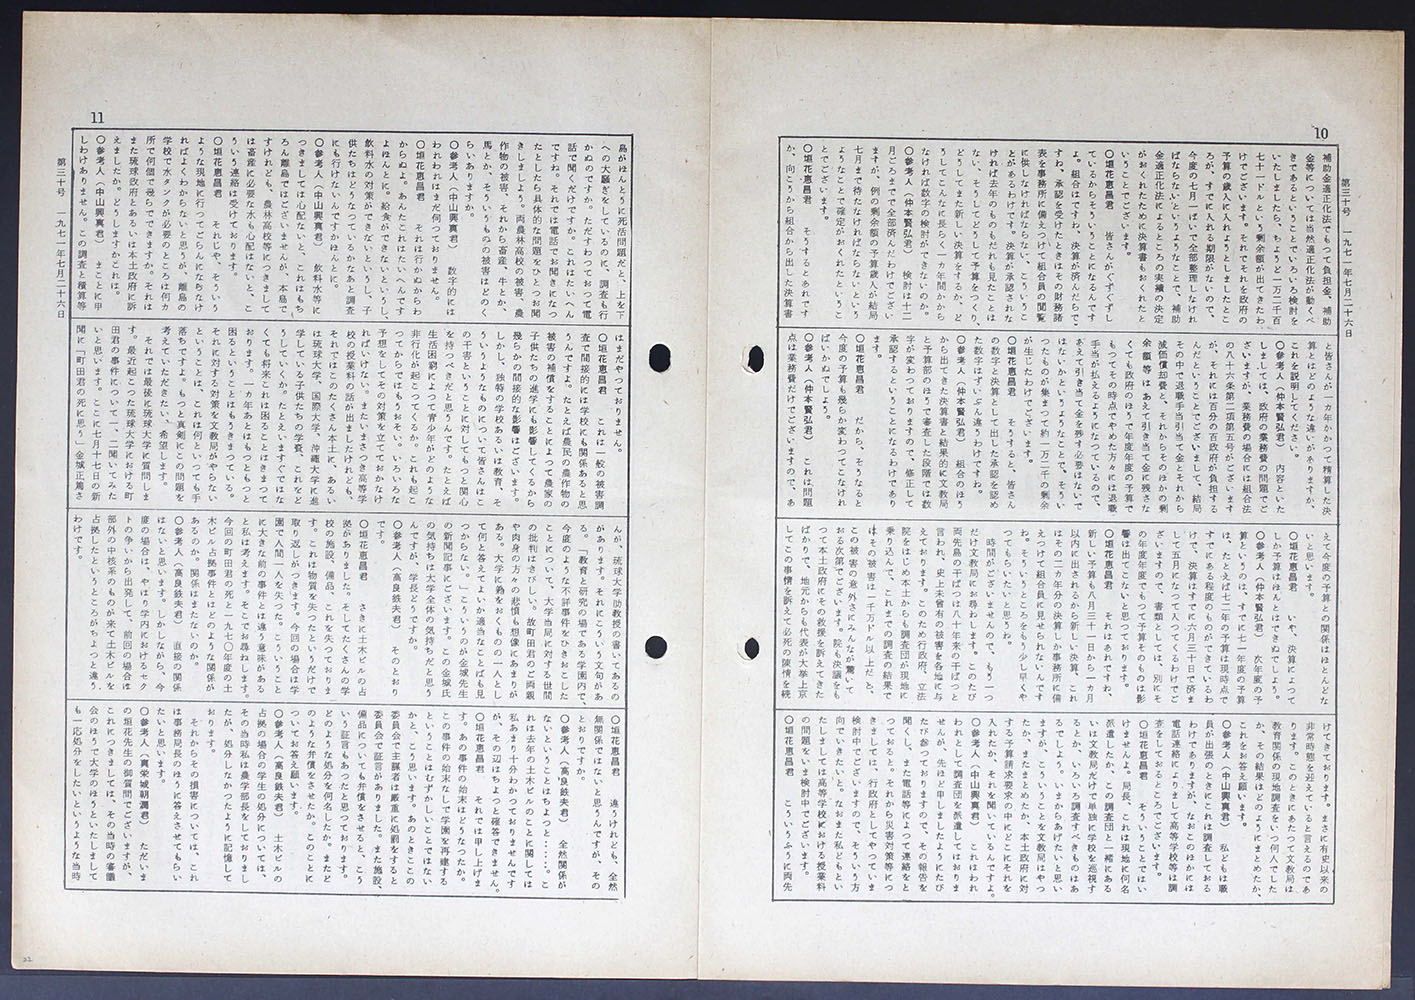 10
第三十号 一九七一年七月二十六日
補助金適正化法でもって負担金、補助
金等については当然適正化法が動くべ
きであるということでいろいろ検討を
いたしましたら、ちょうど一万二千百
七十一ドルという剰余額が出てきたわ
けでございます。それでそれを政府の
予算の歳入に入れようとしましたとこ
ろが、すでに入れる期限がないので、
今度の七月一ぱいで全部整理しなけれ
ばならないというようなことで、補助
金適正化法によるところの実績の決定
がおくれたために決算書もおくれたと
いうことでございます。
〇垣花恵昌君 皆さんがぐずぐずし
ているからそういうことになるんです
よ。組合ではですね、決算が済んだらで
すね、承認を受けたときはその財務諸
表を事務所に備えつけて組合員の閲覧
に供しなければならない、こういうこ
とがあるわけです。決算が承認されな
ければ去年のものもだれも見たことは
ない。そうしてどうして予算をつくり、
どうしてまた新しい決算をするか、ど
うしてこんなに長く一カ年間かからな
なければ数字の検討ができないのか。
〇参考人(仲本賢弘君) 検討は十二
月ごろまで全部済んだわけでござい
ますが、例の剰余額の予算歳入が結局
七月まで待たなければならないという
ようなことで確定がおくれたというこ
とでございます。
〇垣花恵昌君 そうするとあれです
か、向こうから組合から出した決算書
と皆さんが一カ年かかって精算した決
算とはどのような違いがありますか、
これを説明してください。
〇参考人(仲本賢弘君) 内容といた
しましては、政府の業務費の問題でご
ざいますが、業務費の場合には組合法
の八十六条第二項第五号がございます
が、それには百分の百政府が負担する
んだということでございまして、結局
その中で退職手当引当て金とそれから
減価償却費と、それからそのほかの剰
余額等は あえて引き当て金に残さな
くても政府のほうで年度年度の予算で
もってその時点でやめた方々には退職
手当が払えるようになっているので、
あえて引き当て金を残す必要はないで
ったものが集まって約一万二千の剰余
が生じたわけでございます。
〇垣花恵昌君 そうすると、皆さん
の数字と決算として出した承認を認め
た数字はずいぶん違うわけですね。
〇参考人(仲本賢弘君) 組合のほう
から出てきた決算書と結果的に文教局
と予算部のほうで審査した段階では数
字が変わっておりますので、修正して
承認するということになるわけであり
ます。
〇垣花恵昌君 だから、そうなると
今度の予算も幾らか変わってこなけれ
ばいかぬでしょう。
〇参考人(仲本賢弘君) これは問題
点は業務費だけでございますので、あ
えて今度の予算との関係はほとんどな
いと思います。
〇垣花恵昌君 いや、決算によって
しか予算はふえることはないでしょう。
〇参考人(仲本賢弘君) 次年度の予
算というのは、すでに七一年度の予算
は、たとえば七二年の予算は現時点で
すでにある程度のものができているわ
けで、決算はすでに六月三十日で済ま
して五月になって入ってくるわけでご
ざいますので、書類としては、別にそ
の年度年度でもって予算そのものは影
響は出てこないと思っております。
〇垣花恵昌君 それはあれですね、
新しい予算も八月三十一日から一カ月
以内に出されるから新しい決算、これ
はその二カ年分の決算しか事務所に備
えつけて組合員に見せられないんです
ね。そういうところをもう少し早くや
ってもらいたいと思いね。
時間がございませんので、もう一つ
だけ文教局長にお尋ねします。このたび
両先島の干ばつは八十年来の干ばつと
言われ、史上未曾有の被害を各地に与
えております。このため行政府、立法
院をはじめ本土からも調査団が現地に
乗り込んで、これまでの調査の結果で
はその被害は一千万ドル以上だと、
この被害の意外さにみんなが驚いて
おる次第でございます。院も決議をも
って本土政府にその救援を訴えてきた
ばかりで、地元からも代表が大挙上京
してこの事情を訴えて必死の陳情を続
けてきております。まさに有史以来の
非常時態を迎えていると言えるのであ
ります。このときにあたって文教局は
教育関係の現地調査をいつ何人でした
か、その結果はどのようにまとめたか、
これをお答え願います。
〇参考人(中山興真君) 私どもは職
員が出張のときにこれは調査しておる
わけでありますが、なおこのほかには
電話連絡によりまして高等学校等は調
査をしておるところでございます。
〇垣花恵昌君 そういうことではい
けませんよ。局長、これは現地に何名
派遣したか、この調査団と一緒にある
いは文教局だけで単独に学校を巡視す
るとか、いろいろ調査すべきものはあ
るでしょう。いまからあげたいと思い
ますが、こういうことを文教局はやっ
たか、またまとめたか、本土政府に対
する予算請求要求の中にどこにそれを
入れたか、それを聞いているんですよ。
〇参考人(中山興真君) これはわれ
われとして調査団を派遣してはおりま
せんが、先ほど申しましたようにたび
たび参っておりますので、その報告を
聞くし、また電話等によって連絡をと
っておると。それから災害対策等につ
きましては、行政府としてやっていま
検討中でございますので、そういう方
向でいきたいと。なおまた私どもとい
たしましては高等学校における授業料
の問題をいま検討中でございます。
〇垣花恵昌君 こういうふうに両先
11
島がほんとうに死活問題だと、上を下
への大騒ぎをしているのに、調査も行
かぬのですか。ただすわっておって電
話で聞くだけですか。これはたいへん
ですね。それでは電話でお聞きになっ
たとしたら具体的な問題をひとつお聞
きしましょう。両農林高校の被害、農
作物の被害、それから畜産、牛とか、
馬とか、そういうものの被害はどのく
らいありますか。
〇参考人(中山興真君) 数字的には
われわれはまだ伺っておりません。
〇垣花恵昌君 それは行かぬからわ
からぬよ。あんたこれはたいへんです
よほんとに。給食ができないというし、
飲料水の対策ができないというし、子
供たちはどうなっているかなあと調査
にも行けないんですかほんとに。
〇参考人(中山興真君) 飲料水等に
つきましては心配ないと、これはもち
ろん離島ではございませんが、本島で
すけれども、農林高校等につきまして
は畜産に必要な水も心配はないと、こ
ういう連絡は受けております。
〇垣花恵昌君 それじゃ、そういう
ような現地に行ってごらんにならなけ
ればよくわからないと思うが、離島の
学校で水タンクが必要のところは何カ
所で何個で幾らでできますか。それは
また琉球政府とあるいは本土政府に訴
えましたか。どうしますかこれは。
〇参考人(中山興真君) まことに申
しわけありません。この調査と積算等
はまだやっておりません。
〇垣花恵昌君 これは一般の被害調
査で間接的には学校にも関係あると思
うんですよ。たとえば農民の農作物の
被害を補償することによって農家の
子供たちの進学にも影響してくるから
幾らかの間接的な影響はございます。
しかし、独特の学校あるいは教育、そ
ういうようなものについて皆さんはこ
の干害ということに対してもっと関心
を持つべきだと思うんです。たとえば
生活困窮によって青少年がどのような
非行化が起こってくるか。これも起こ
ってからではもうおそい。いろいろな
予想をしてその対策を立てておかなけ
ればいけない。またいまさっき高等学
校の授業料の話が出ましたけれども、
それではこのたくさん本土に、あるい
は琉球大学、国際大学、沖縄大学に進
学している子供たちの学資、これをど
うしていくか。たとえいますぐではな
くても将来これは困ることはきまって
おります。一カ年あとではもっともっと
困るということはもうきまっている。
それに対する対策を文教局がやらない
ということは、これは何といっても手
落ちですよ。もっと真剣にこの問題を
考えていただきたい、希望します。
それでは最後に琉球大学に質問しま
す。最近起こった琉球大学における町
田君の事件について一、二聞いてみた
いと思います。ここに七月十七日の新
聞に「町田君の死に思う」金城正篤さ
んが、琉球大学助教授の書いてあるの
があります。それにこういう文句があ
る。「教育と研究の場である学園内で、
今度のような不祥事件をひきおこした
ことについて、大学当局に対する世間
の批判はきびしい。故町田君のご両親
や肉身の方々の悲憤も想像にあまりが
ある。大学に籍をおくものの一人とし
て何と答えてよいか適当なことばも見
つからない。」こういうのが金城先生
の新聞記事にございます。この金城氏
の気持ちは大学全体の気持ちだと思う
んですが、学長どうですか。
〇参考人(高良鉄夫君) そのとおり
です。
〇垣花恵昌君 さきに土木ビルの占
拠がありました。そしてたくさんの学
校の施設、備品、これを失っておりま
す。これは物質を失ったというだけで
取り返しがつきます。今回の場合は学
園で人間一人を失った。こういうこと
に大きな前の事件とは違う意味がある
と私は考えます。そこでお尋ねします。
今回の町田君の死と一九七〇年度の土
木ビル占拠事件とはどのような関係が
あるのか。関係はまたないのか。
〇参考人(高良鉄夫君) 直接の関係
はないと思います。しかしながら、今
度の場合は、やはり学内におけるセク
トの争いから出発して、前回の場合は
部外の中核系のものが来て土木ビルを
占拠したというところがちょっと違う
わけです。
〇垣花恵昌君 違うけれども、全然
無関係ではないと思うんですが、その
とおりですか。
〇参考人(高良鉄夫君) 全然関係が
ないということはちょっと……。こ
れは去年の土木ビルのことに関しては
私あまり十分わかっておりませんです
が、その辺はちょっと確答できません。
〇垣花恵昌君 それでは申し上げま
す。あの事件の始末はどうなったか。
この事件の始末なしで学園を再建する
ということはむずかしいことではない
かと、こう思います。あのときここの
委員会で主謀者は厳重に処罰をすると
委員会で証言がありました。また施設、
備品についても弁償させると、こう
いう証言もあったと思っております。
どのような処分を何名したか。またど
のような弁償をさせたか。このことに
ついてお答え願います。
〇参考人(高良鉄夫君) 土木ビルの
占拠の場合の学生の処分については、
その当時私は農学部長をしておりまし
たが、処分しなかったように記憶して
おります。
それからその損害については、これ
は事務局長のほうに答えさせてもらい
たいと思います。
〇参考人(真栄城朝潤君) ただいま
の垣花先生の御質問でございますが、
これにつきましては、その当時の審議
会のほうで大学のほうといたしまして
も一応処分をしたいというような当時
第三十号 一九七一年七月二十六日
22